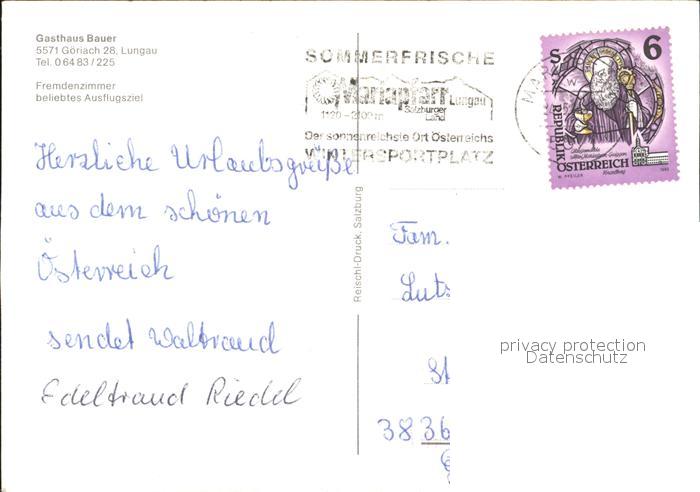 Gasthaus Bauer
5571 Göriach 28, Lungau
Tel. 0 64 83 / 225
Fremdenzimmer
beliebtes Ausflugsziel
SOMMERFRISCHE
Mariapfarr Lungau
Salzburger
Land
1120 - 2400 m
Der sonnenreichste Ort Österreichs
WINTERSPORTPLATZ
6
REPUBLIK
ÖSTERREICH
Herzliche Urlaubsgrüße
aus dem schönen
Österreich
sendet Waltraud
Edeltraud Riedel
Reischl-Druck, Salzburg
Fam.
Luts
St
38 36
privacy protection
Datenschutz